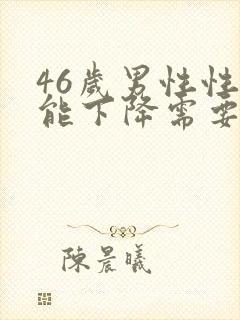 46岁男性性
能下降需要
陳晨曦